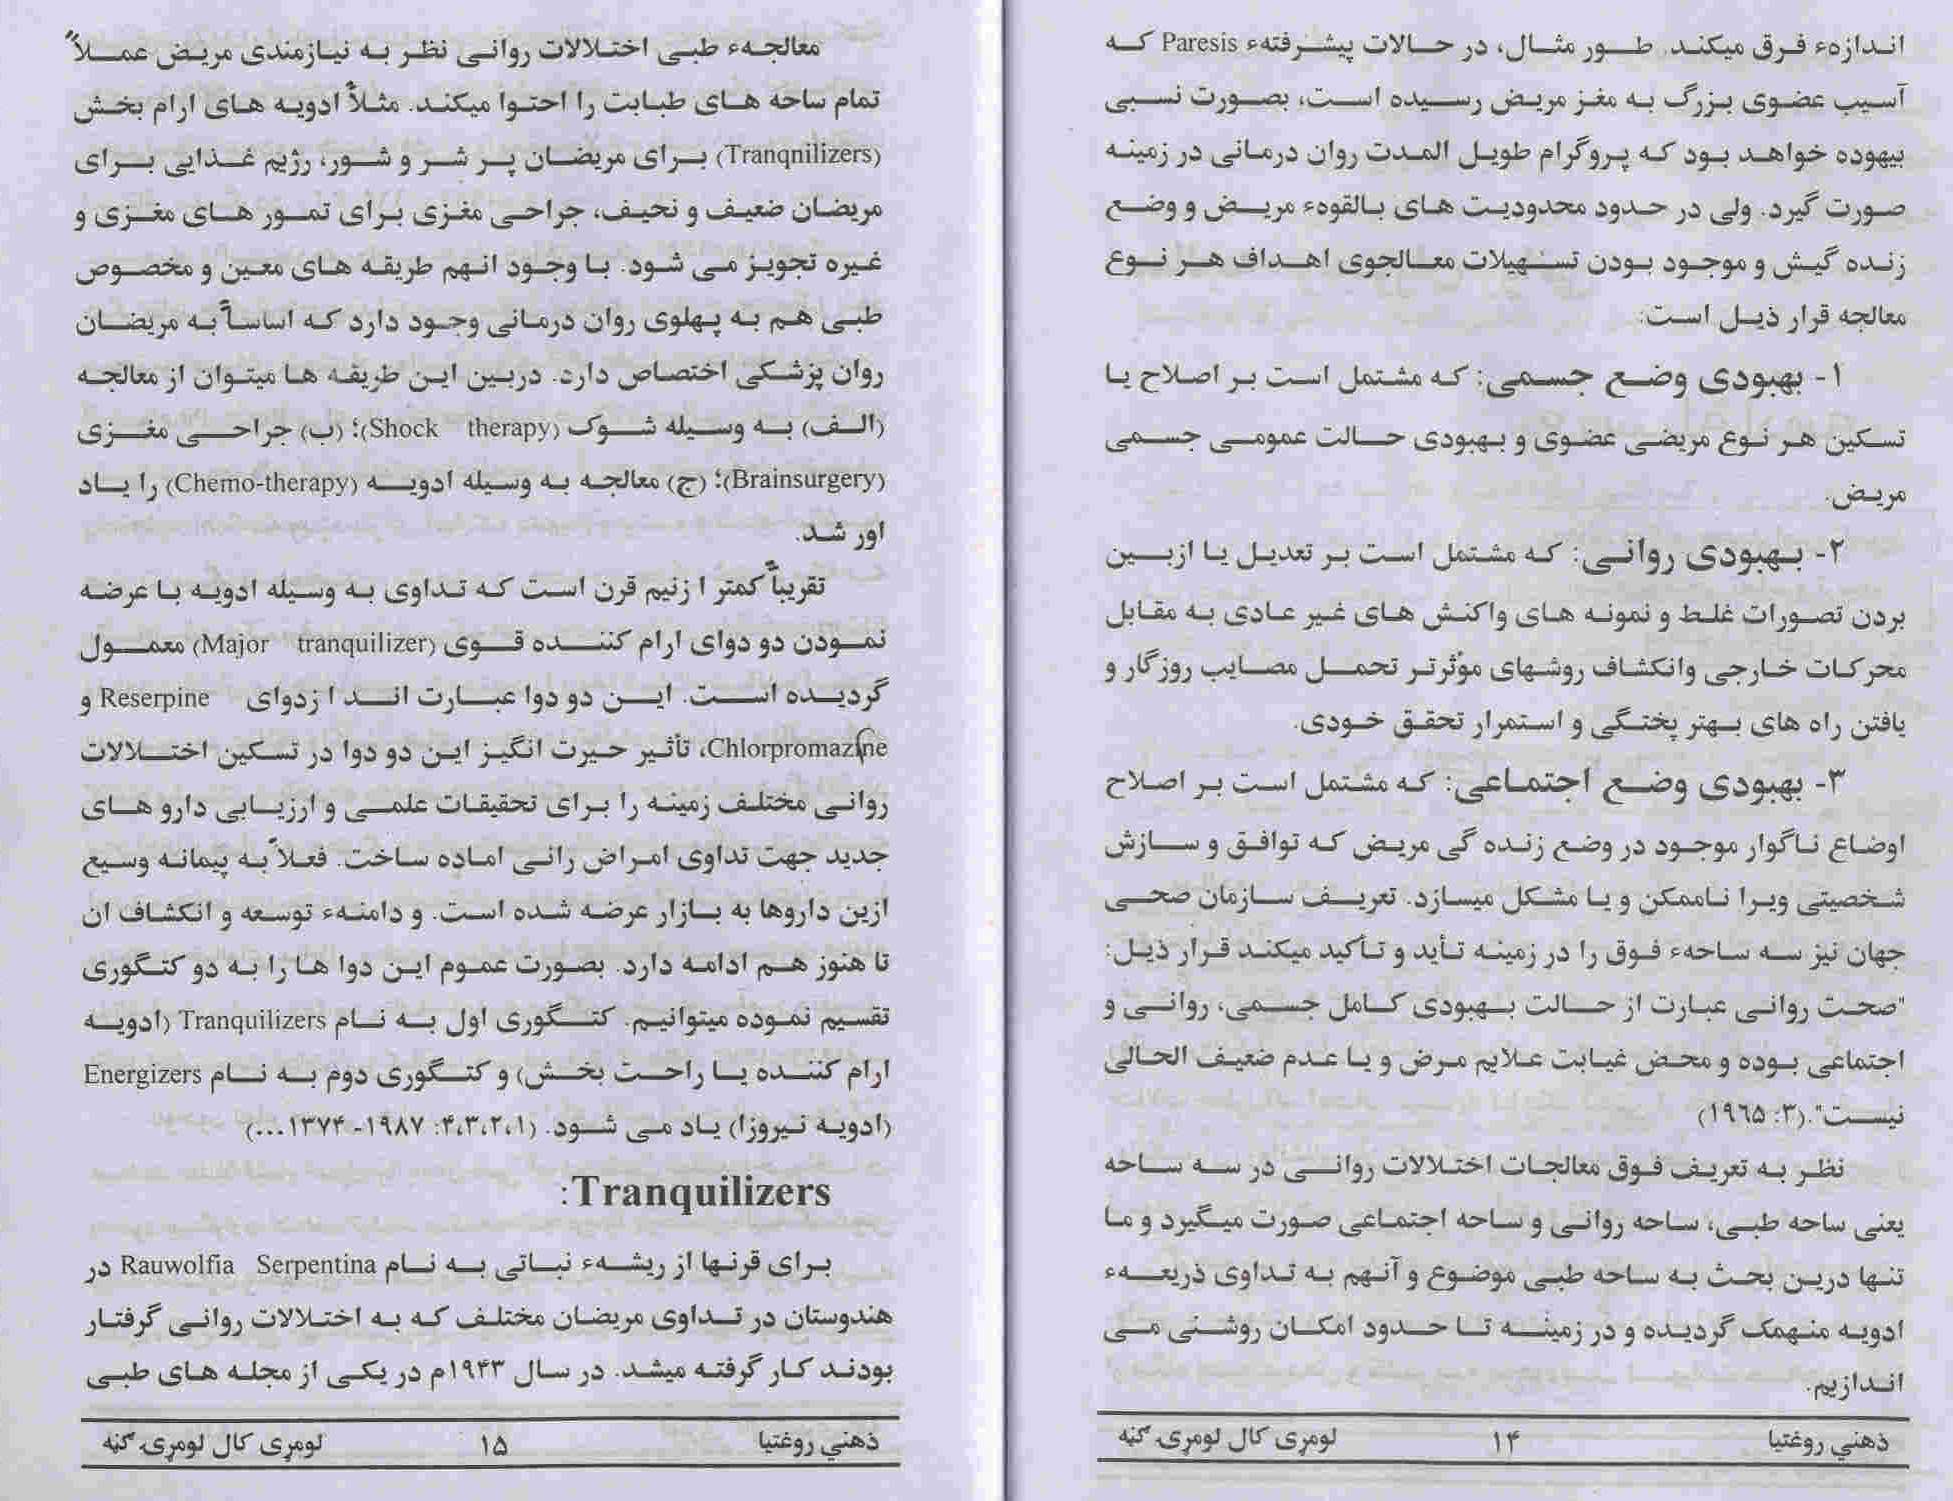 اندازهء فرق میکند. طور مثال، در حالات پیشرفتهء Paresis که
آسیب عضوی بزرگ به مغز مریض رسیده است، بصورت نسبی
بیهوده خواهد بود که پروگرام طویل المدت روان درمانی در زمینه
صورت گیرد. ولی در حدود محدودیت های بالقوهء مریض و وضع
زنده گیش و موجود بودن تسهیلات معالجوی اهداف هر نوع
معالجه قرار ذیل است:
۱- بهبودی وضع جسمی: که مشتمل است بر اصلاح یا
تسکین هر نوع مریضی عضوی و بهبودی حالت عمومی جسمی
مریض.
۲- بهبودی روانی: که مشتمل است بر تعدیل یا ازبین
بردن تصورات غلط و نمونه های واکنش های غیر عادی به مقابل
محرکات خارجی وانکشاف روشهای مؤثرتر تحمل مصایب روزگار و
یافتن راه های بهتر پختگی و استمرار تحقق خودی.
۳- بهبودی وضع اجتماعی: که مشتمل است بر اصلاح
اوضاع ناگوار موجود در وضع زنده گی مریض که توافق و سازش
شخصیتی ویرا ناممکن و یا مشکل میسازد. تعریف سازمان صحی
جهان نیز سه ساحهء فوق را در زمینه تأید و تأکید میکند قرار ذیل:
"صحت روانی عبارت از حالت بهبودی کامل جسمی، روانی و
اجتماعی بوده و محض غیابت علایم مرض و یا عدم ضعیف الحالی
نیست".(۳: ۱۹۶۵)
نظر به تعریف فوق معالجات اختلالات روانی در سه ساحه
یعنی ساحه طبی، ساحه روانی و ساحه اجتماعی صورت میگیرد و ما
تنها درین بحث به ساحه طبی موضوع و آنهم به تداوی ذریعهء
ادویه منهمک گردیده و در زمینه تا حدود امکان روشنی می
اندازیم.
ذهني روغتيا ۱۴ لومړی کال لومړۍ ګڼه
معالجهء طبی اختلالات روانی نظر به نیازمندی مریض عملاً
تمام ساحه های طبابت را احتوا میکند. مثلاً ادویه های ارام بخش
(Tranqnilizers) برای مریضان پر شر و شور، رژیم غذایی برای
مریضان ضعیف و نحیف، جراحی مغزی برای تمور های مغزی و
غیره تجویز می شود. با وجود انهم طریقه های معین و مخصوص
طبی هم به پهلوی روان درمانی وجود دارد که اساساً به مریضان
روان پزشکی اختصاص دارد. دربین این طریقه ها میتوان از معالجه
(الف) به وسیله شوک (Shock therapy)؛ (ب) جراحی مغزی
(Brainsurgery)؛ (ج) معالجه به وسیله ادویه (Chemo-therapy) را یاد
اور شد.
تقریباً کمتر ا زنیم قرن است که تداوی به وسیله ادویه با عرضه
نمودن دو دوای ارام کننده قوی (Major tranquilizer) معمول
گردیده است. این دو دوا عبارت اند ا زدوای Reserpine و
Chlorpromazine، تأثیر حیرت انگیز این دو دوا در تسکین اختلالات
روانی مختلف زمینه را برای تحقیقات علمی و ارزیابی دارو های
جدید جهت تداوی امراض رانی اماده ساخت. فعلاً به پیمانه وسیع
ازین داروها به بازار عرضه شده است. و دامنهء توسعه و انکشاف ان
تا هنوز هم ادامه دارد. بصورت عموم این دوا ها را به دو کتگوری
تقسیم نموده میتوانیم. کتگوری اول به نام Tranquilizers (ادویه
ارام کننده یا راحت بخش) و کتگوری دوم به نام Energizers
(ادویه نیروزا) یاد می شود. (۴،۳،۲،۱: ۱۹۸۷- ۱۳۷۴...)
Tranquilizers:
برای قرنها از ریشهء نباتی به نام Rauwolfia Serpentina در
هندوستان در تداوی مریضان مختلف که به اختلالات روانی گرفتار
بودند کار گرفته میشد. در سال ۱۹۴۳م در یکی از مجله های طبی
ذهني روغتيا ۱۵ لومړی کال لومړۍ ګڼه